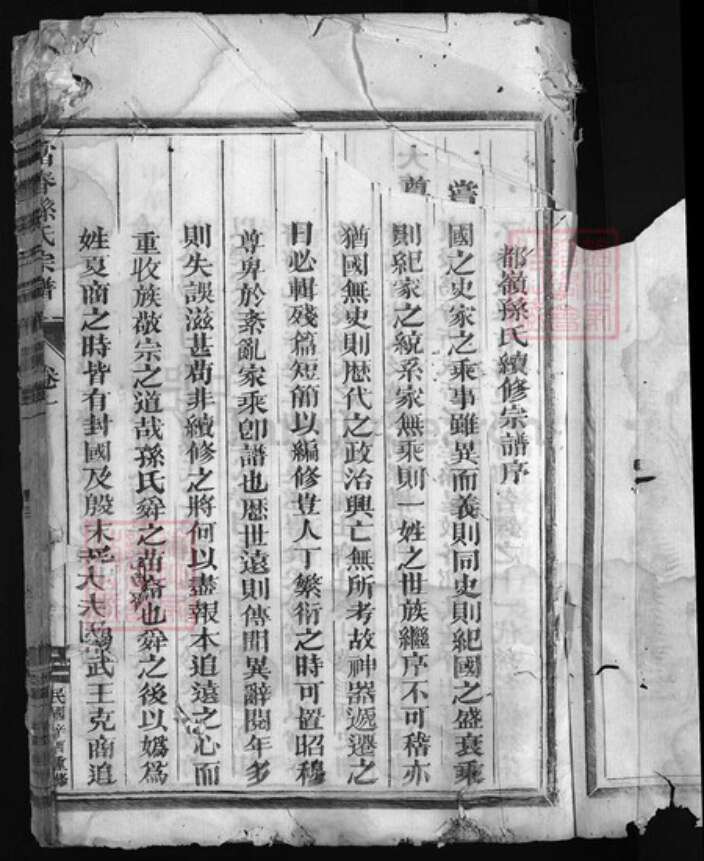 都嶺孫氏續修宗譜序
嘗國之史家之乘事雖異而義則同史則紀國之盛衰乘
則紀家之統系家無乘則一姓之世族繼序不可稽亦
猶國無史則歷代之政治興亡無所考故神器遞遷之
日必輯殘篇短簡以編修豈人丁繁衍之時可置昭穆
尊卑於紊亂家乘卽譜也歷世遠則傳聞異辭閱年多
則失誤滋甚苟非續修之將何以盡報本追遠之心而
重收族敬宗之道哉孫氏舜之苗裔也舜之後以媯為
姓夏商之時皆有封國及殷末大夫武王克商追
富春孫氏宗譜
卷一
民國辛酉重修